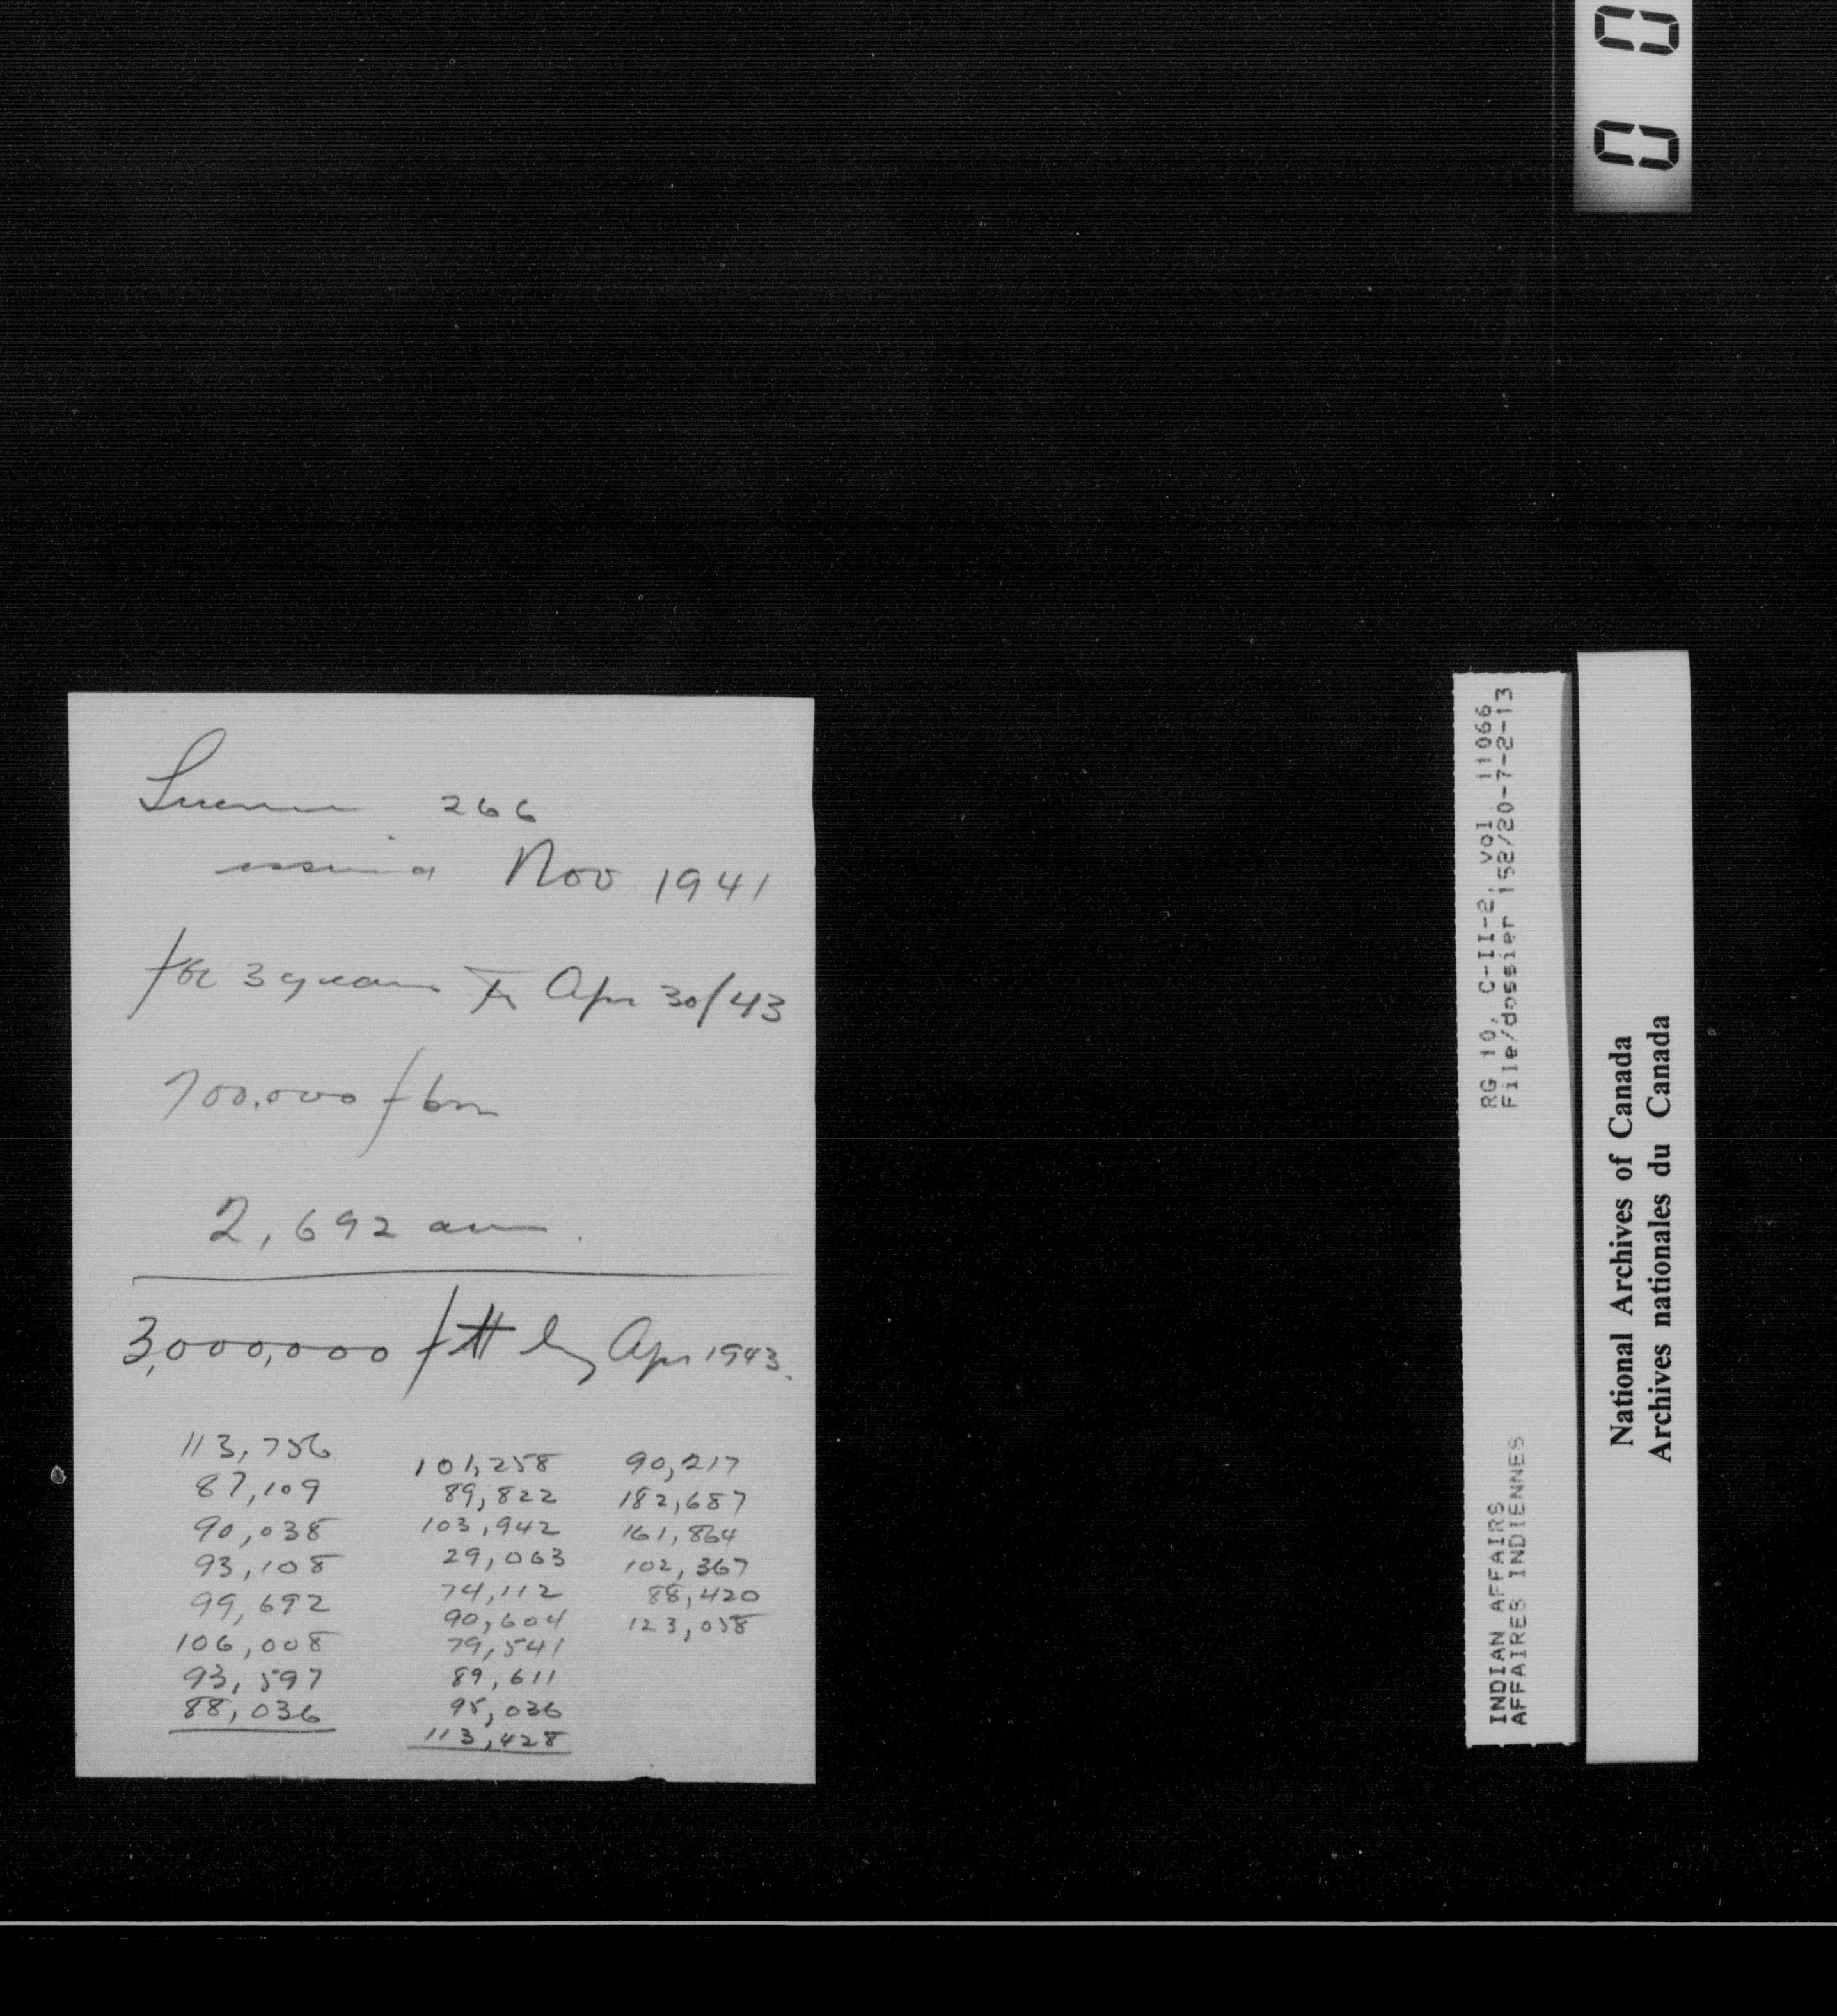 License 266
issued Nov 1941
for 3 years to Apr 30/43
700.000 fbm
2,692 acres.
3,000,000 ft by Apr 1943.
113,756
87,109
90,038
93,108
99,692
106,008
93,597
88,036
101,258
89,822
103,942
29,063
74,112
90,604
79,541
89,611
95,036
113,428
90,217
182,687
161,864
102,367
88,420
123,058
RG 10, C-II-2, vol. 11066
File/dossier 152/20-7-2-13
INDIAN AFFAIRS
AFFAIRES INDIENNES
National Archives of Canada
Archives nationales du Canada
0 0